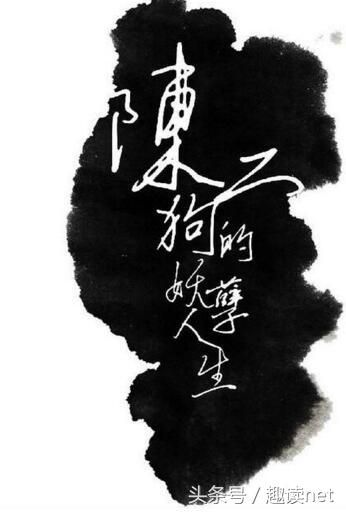 陳二狗的妖孽人生
头条号／趣读net